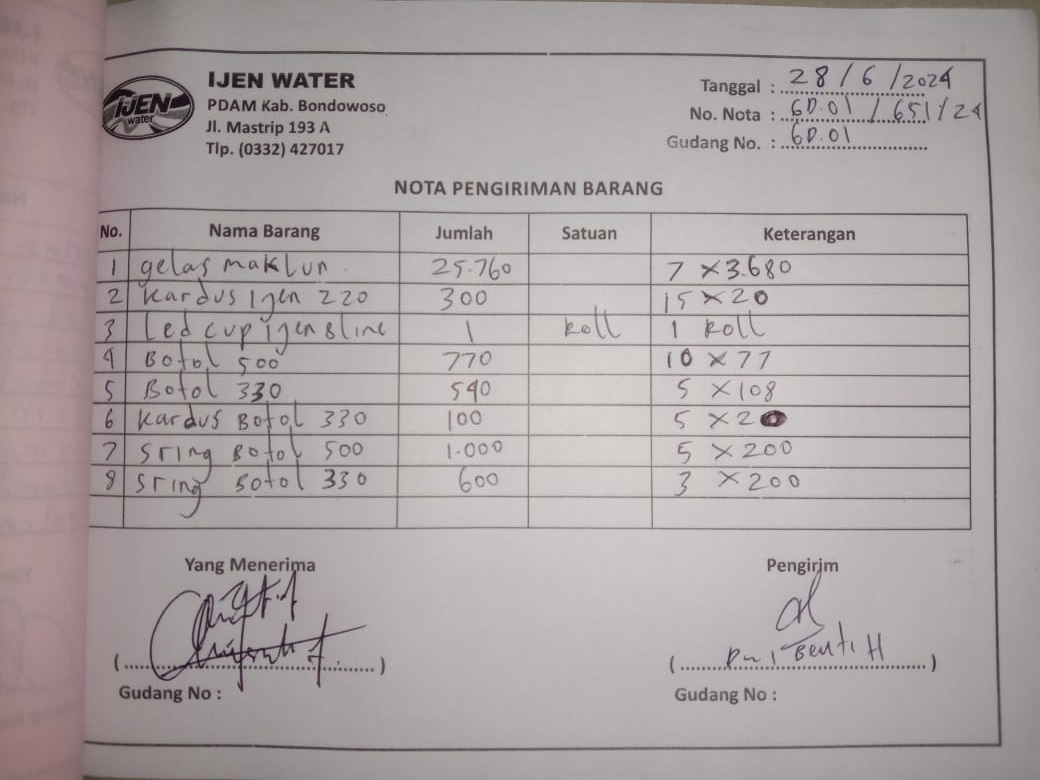 IJEN
water
IJEN WATER
PDAM Kab. Bondowoso
Jl. Mastrip 193 A
Tlp. (0332) 427017
Tanggal : 28 / 6 / 2024
No. Nota : GD.01 / 651 / 24
Gudang No. : GD.01
NOTA PENGIRIMAN BARANG
No. Nama Barang Jumlah Satuan Keterangan
1 gelas maklun 25.760 7 × 3.680
2 Kardus Ijen 220 300 15 × 20
3 Led cup ijen 8 line 1 Roll 1 Roll
4 Botol 500 770 10 × 77
5 Botol 330 540 5 × 108
6 Kardus Botol 330 100 5 × 20
7 Sring Botol 500 1.000 5 × 200
8 Sring Botol 330 600 3 × 200
Yang Menerima Pengirim
H
Gudang No : Gudang No :